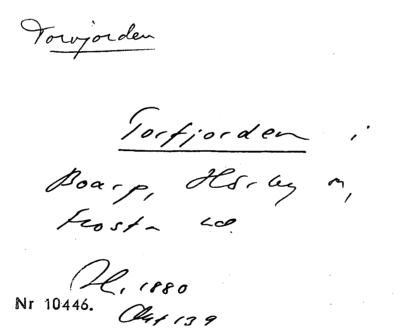 Torvjorden
Torfjorden i
Boarp, Hörby n,
Frosta hd.
1880
Nr 10446.
Akt 139